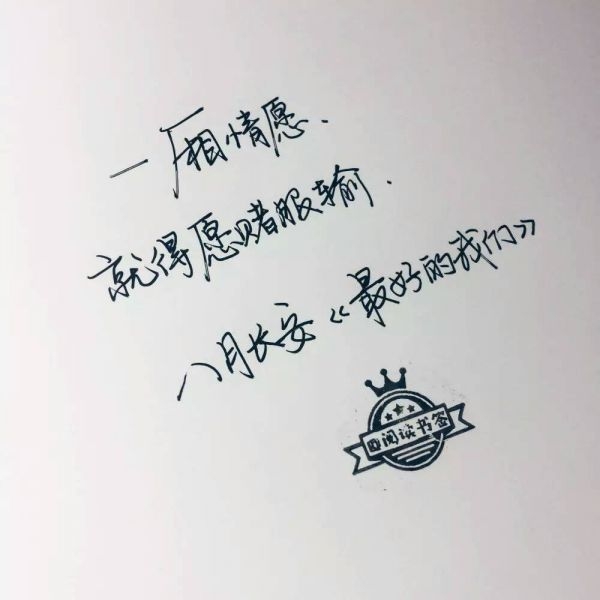 一厢情愿.
就得愿赌服输.
八月长安《最好的我们》
阅读书签